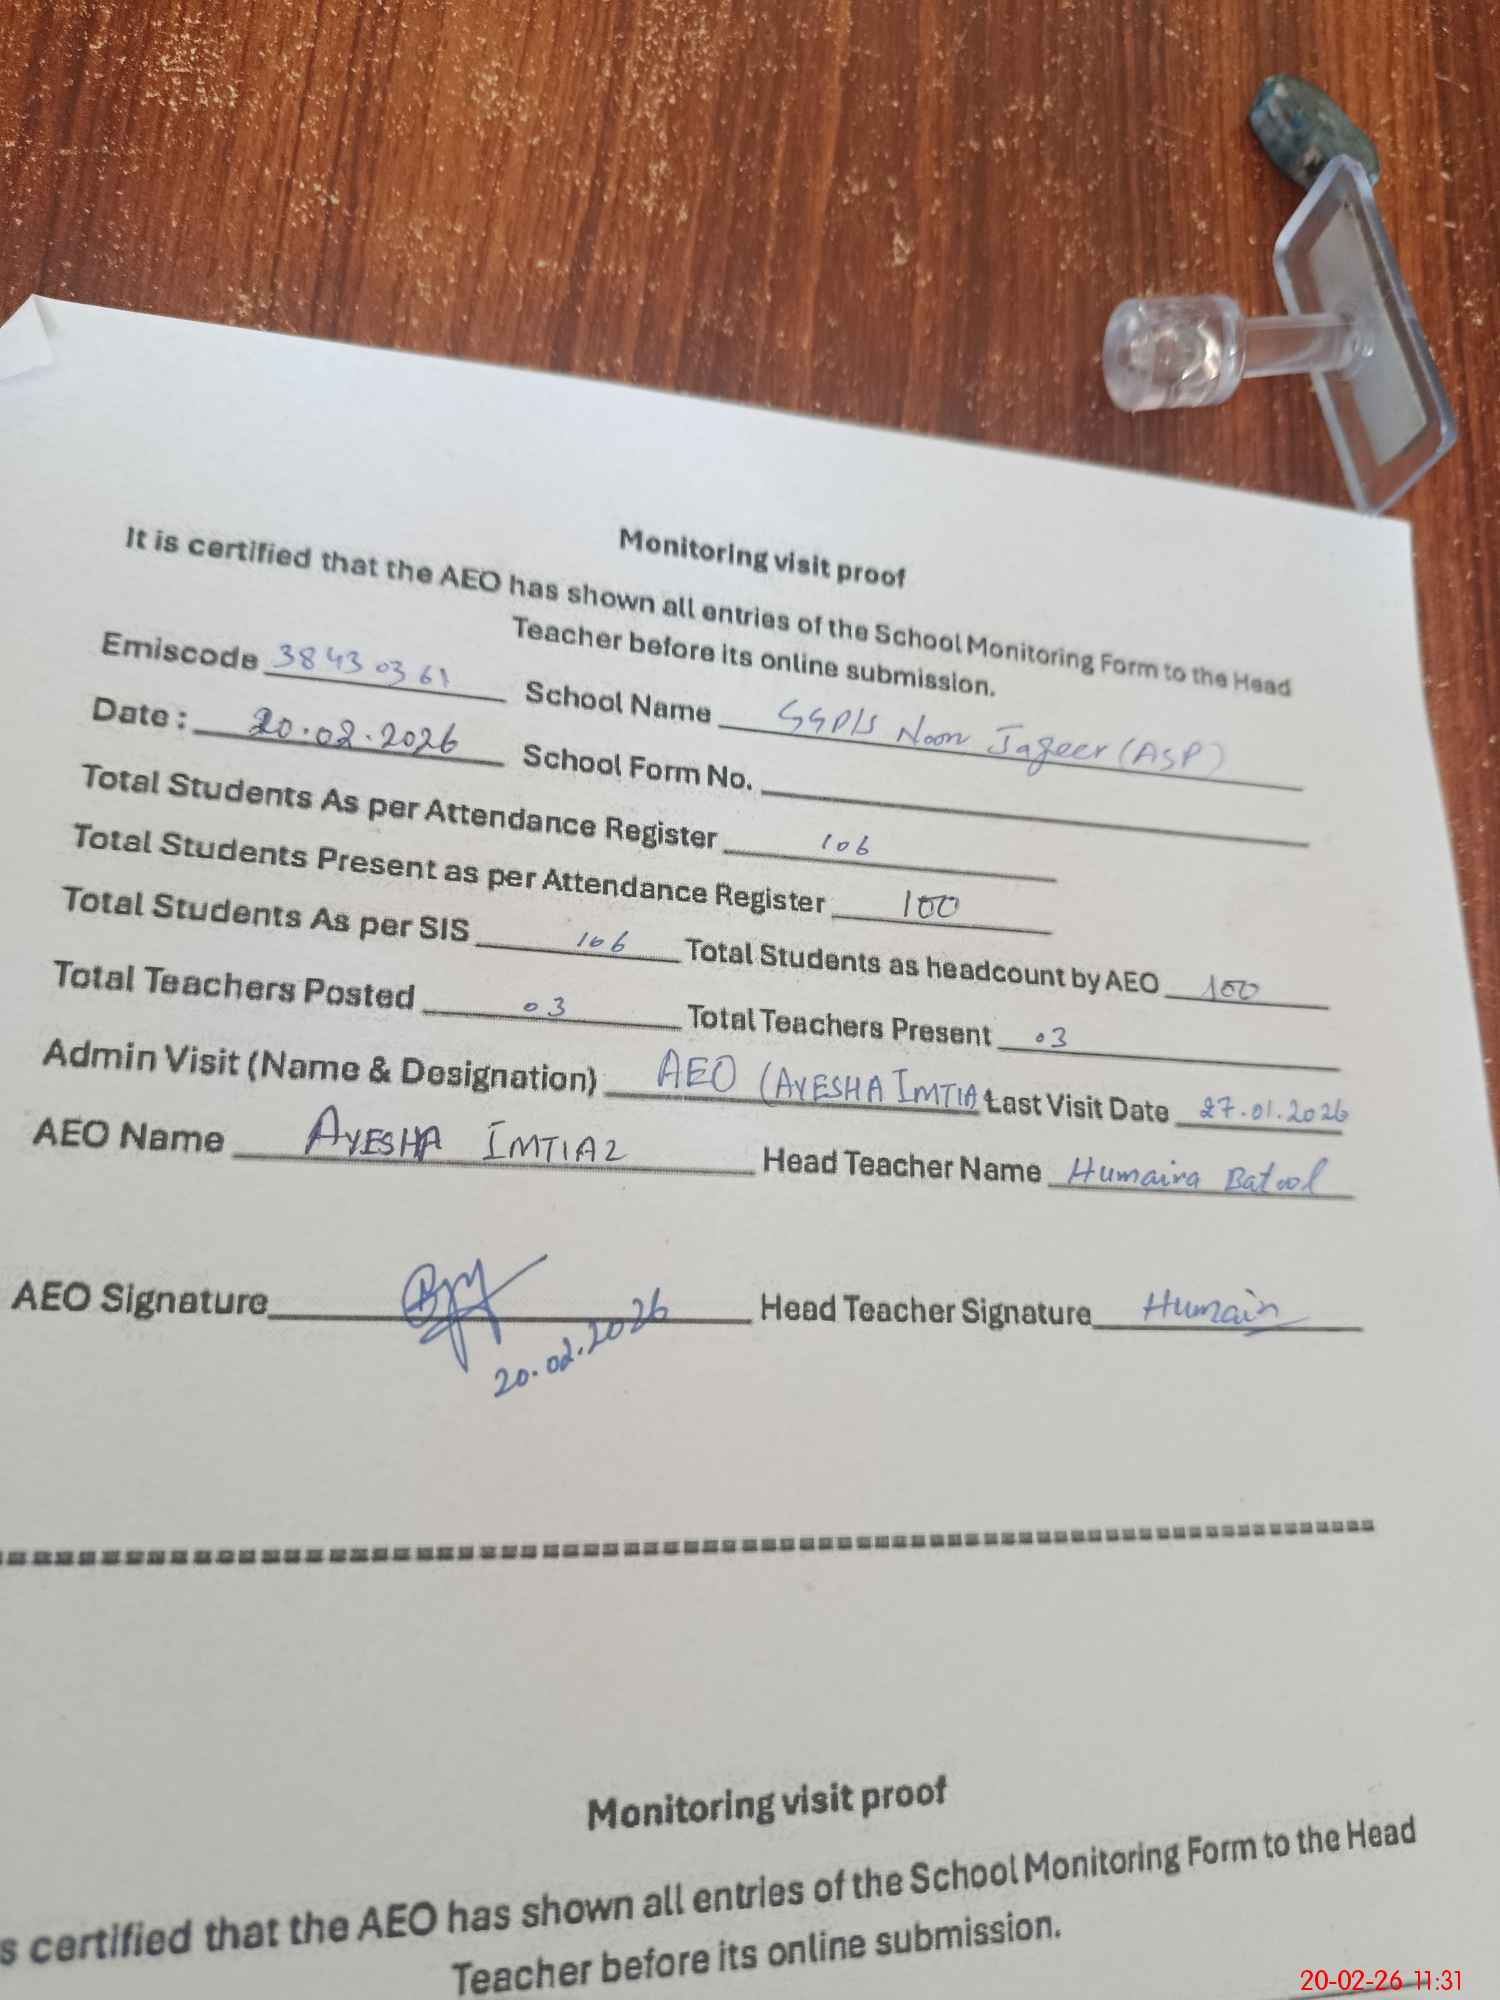 Monitoring visit proof
It is certified that the AEO has shown all entries of the School Monitoring Form to the Head
Teacher before its online submission.
Emiscode 38430361 School Name GGP/S Noon Jageer (ASP)
Date : 20.02.2026 School Form No.
Total Students As per Attendance Register 106
Total Students Present as per Attendance Register 100
Total Students As per SIS 106 Total Students as headcount by AEO 100
Total Teachers Posted 03 Total Teachers Present 03
Admin Visit (Name & Designation) AEO (AYESHA IMTIA Last Visit Date 27.01.2026
AEO Name AYESHA IMTIAZ Head Teacher Name Humaira Batool
AEO Signature Head Teacher Signature Humaira
20.02.2026
Monitoring visit proof
s certified that the AEO has shown all entries of the School Monitoring Form to the Head
Teacher before its online submission.
20-02-26 11:31